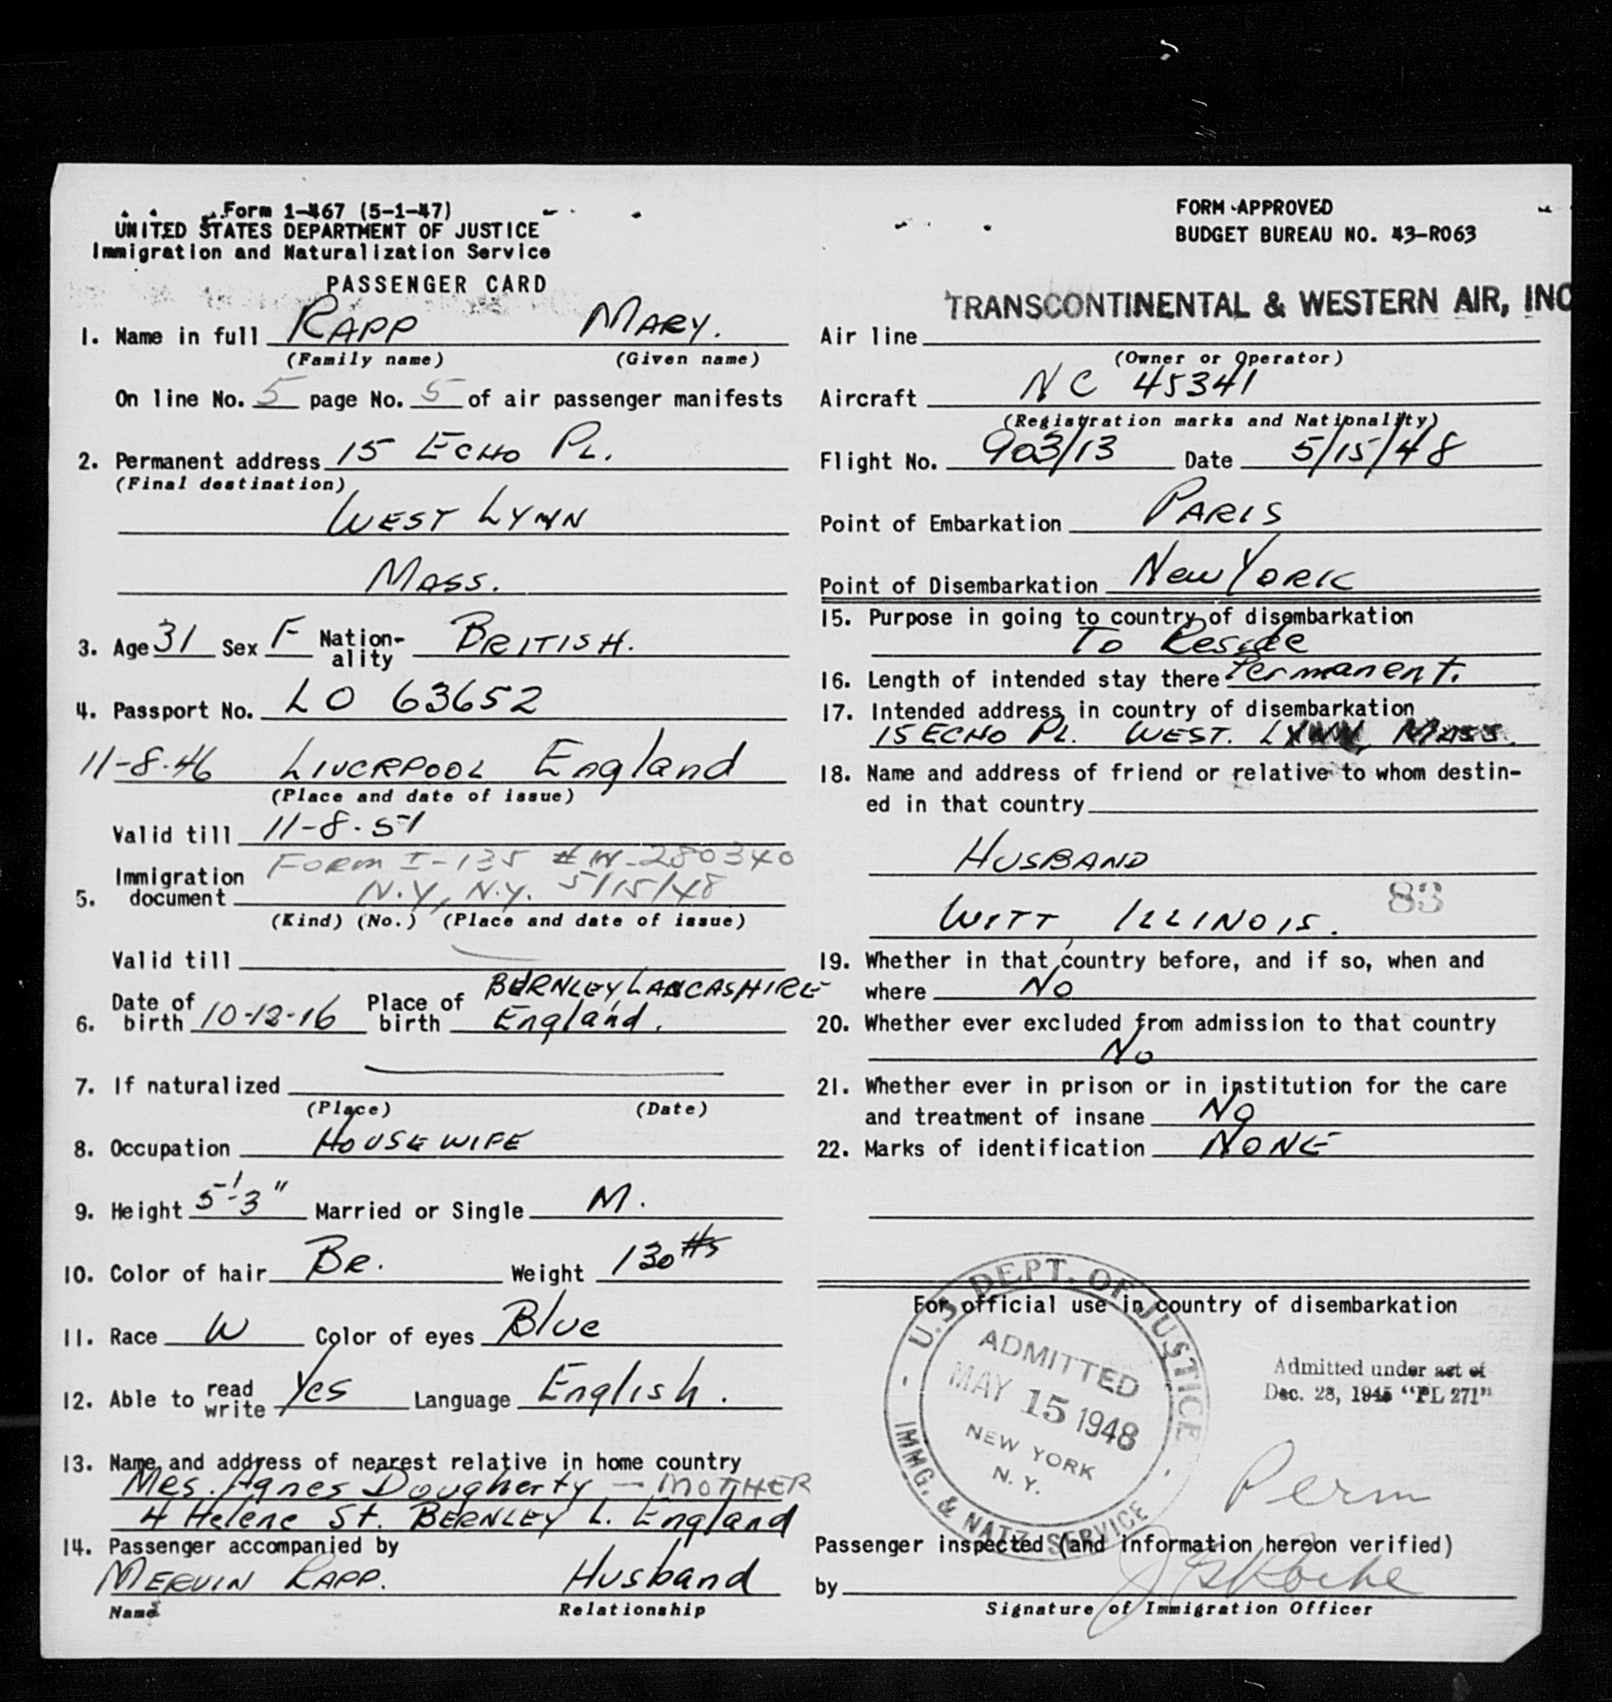 Form 1-467 (5-1-47)
UNITED STATES DEPARTMENT OF JUSTICE
Immigration and Naturalization Service
PASSENGER CARD
1. Name in full RAPP MARY.
(Family name) (Given name)
On line No. 5 page No. 5 of air passenger manifests
2. Permanent address 15 ECHO PL.
(Final destination)
WEST LYNN
MASS.
3. Age 31 Sex F Nation-ality BRITISH.
4. Passport No. LO 63652
11-8-46 LIVERPOOL England
(Place and date of issue)
Valid till 11-8-51
5. Immigration document FORM I-135 # N-280340
N.Y., N.Y. 5/15/48
(Kind) (No.) (Place and date of issue)
Valid till
6. Date of birth 10-12-16 Place of birth BURNLEY LANCASHIRE
England.
7. If naturalized
(Place) (Date)
8. Occupation HOUSEWIFE
9. Height 5'-3" Married or Single M.
10. Color of hair BR. Weight 130 #s
11. Race W Color of eyes Blue
12. Able to read write Yes Language English.
13. Name and address of nearest relative in home country
Mrs. Agnes Dougherty — MOTHER
4 Helene St. BERNLEY L. England
14. Passenger accompanied by
MERVIN RAPP. Husband
Name Relationship
FORM APPROVED
BUDGET BUREAU NO. 43-R063
TRANSCONTINENTAL & WESTERN AIR, INC
Air line
(Owner or Operator)
Aircraft NC 45341
(Registration marks and Nationality)
Flight No. 903/13 Date 5/15/48
Point of Embarkation PARIS
Point of Disembarkation New YORK
15. Purpose in going to country of disembarkation
To Reside
16. Length of intended stay there Permanent.
17. Intended address in country of disembarkation
15 ECHO PL. WEST. LYNN, MASS.
18. Name and address of friend or relative to whom destin-
ed in that country
HUSBAND
83
WITT, ILLINOIS.
19. Whether in that country before, and if so, when and
where No
20. Whether ever excluded from admission to that country
No
21. Whether ever in prison or in institution for the care
and treatment of insane No
22. Marks of identification NONE
For official use in country of disembarkation
U.S. DEPT. OF JUSTICE
ADMITTED
MAY 15 1948
NEW YORK
N. Y.
IMMG. & NATZ. SERVICE
Admitted under act of
Dec. 28, 1945 "PL 271"
Perm
Passenger inspected (and information hereon verified)
by
Signature of Immigration Officer